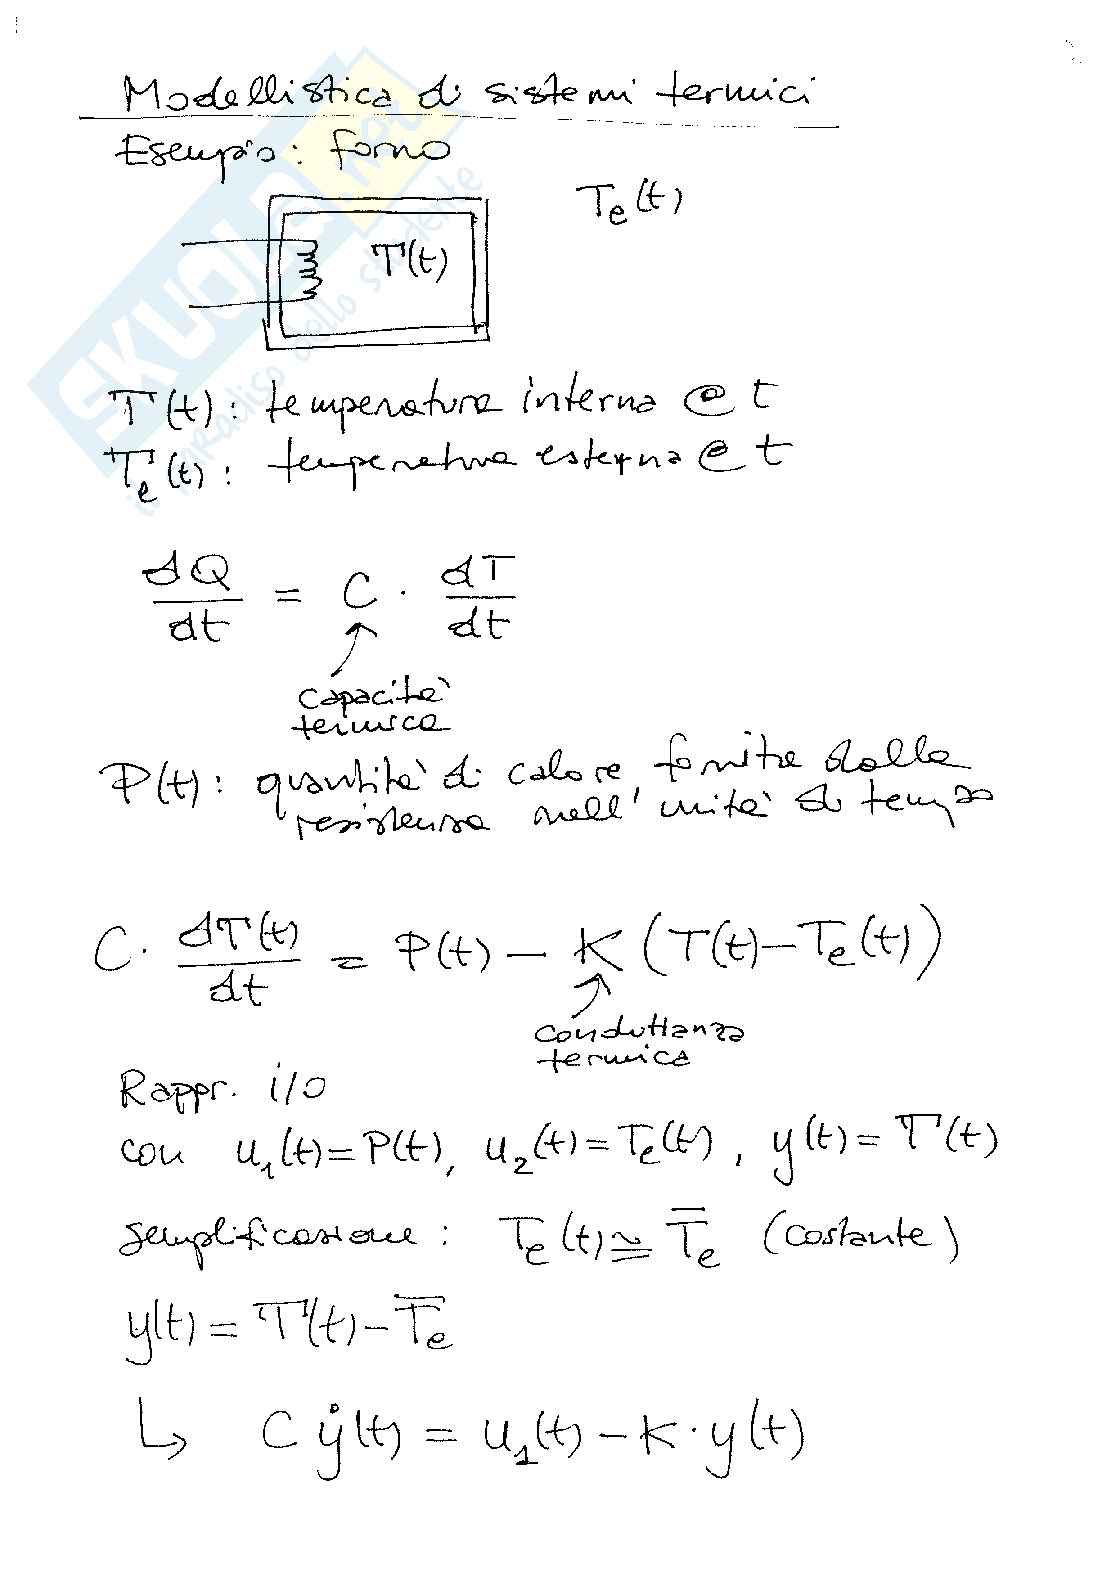 Modellistica di sistemi termici
Esempio: forno
Te(t)
T(t)
T(t): temperatura interna @ t
Te(t): temperatura esterna @ t
dQ/dt = C · dT/dt
capacità
termica
P(t): quantità di calore fornita dalla
resistenza nell'unità di tempo
C · dT(t)/dt = P(t) − K (T(t) − Te(t))
conduttanza
termica
Rappr. i/o
con u₁(t) = P(t), u₂(t) = Te(t), y(t) = T(t)
semplificazione: Te(t) ≅ T̄e (costante)
y(t) = T(t) − T̄e
↳ C ẏ(t) = u₁(t) − K · y(t)
SKUOLA.net
il paradiso dello studente